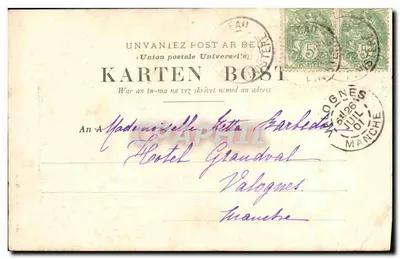 UNVANIEZ POST AR BED
(Union postale Universelle)
KARTEN BOST
War an tu-ma na vez skrivet nemed an adress
An a Mademoiselle Barbedo
Hotel Grandval
Valognes
Manche
5 5
VALOGNES
26
JUIL
01
MANCHE